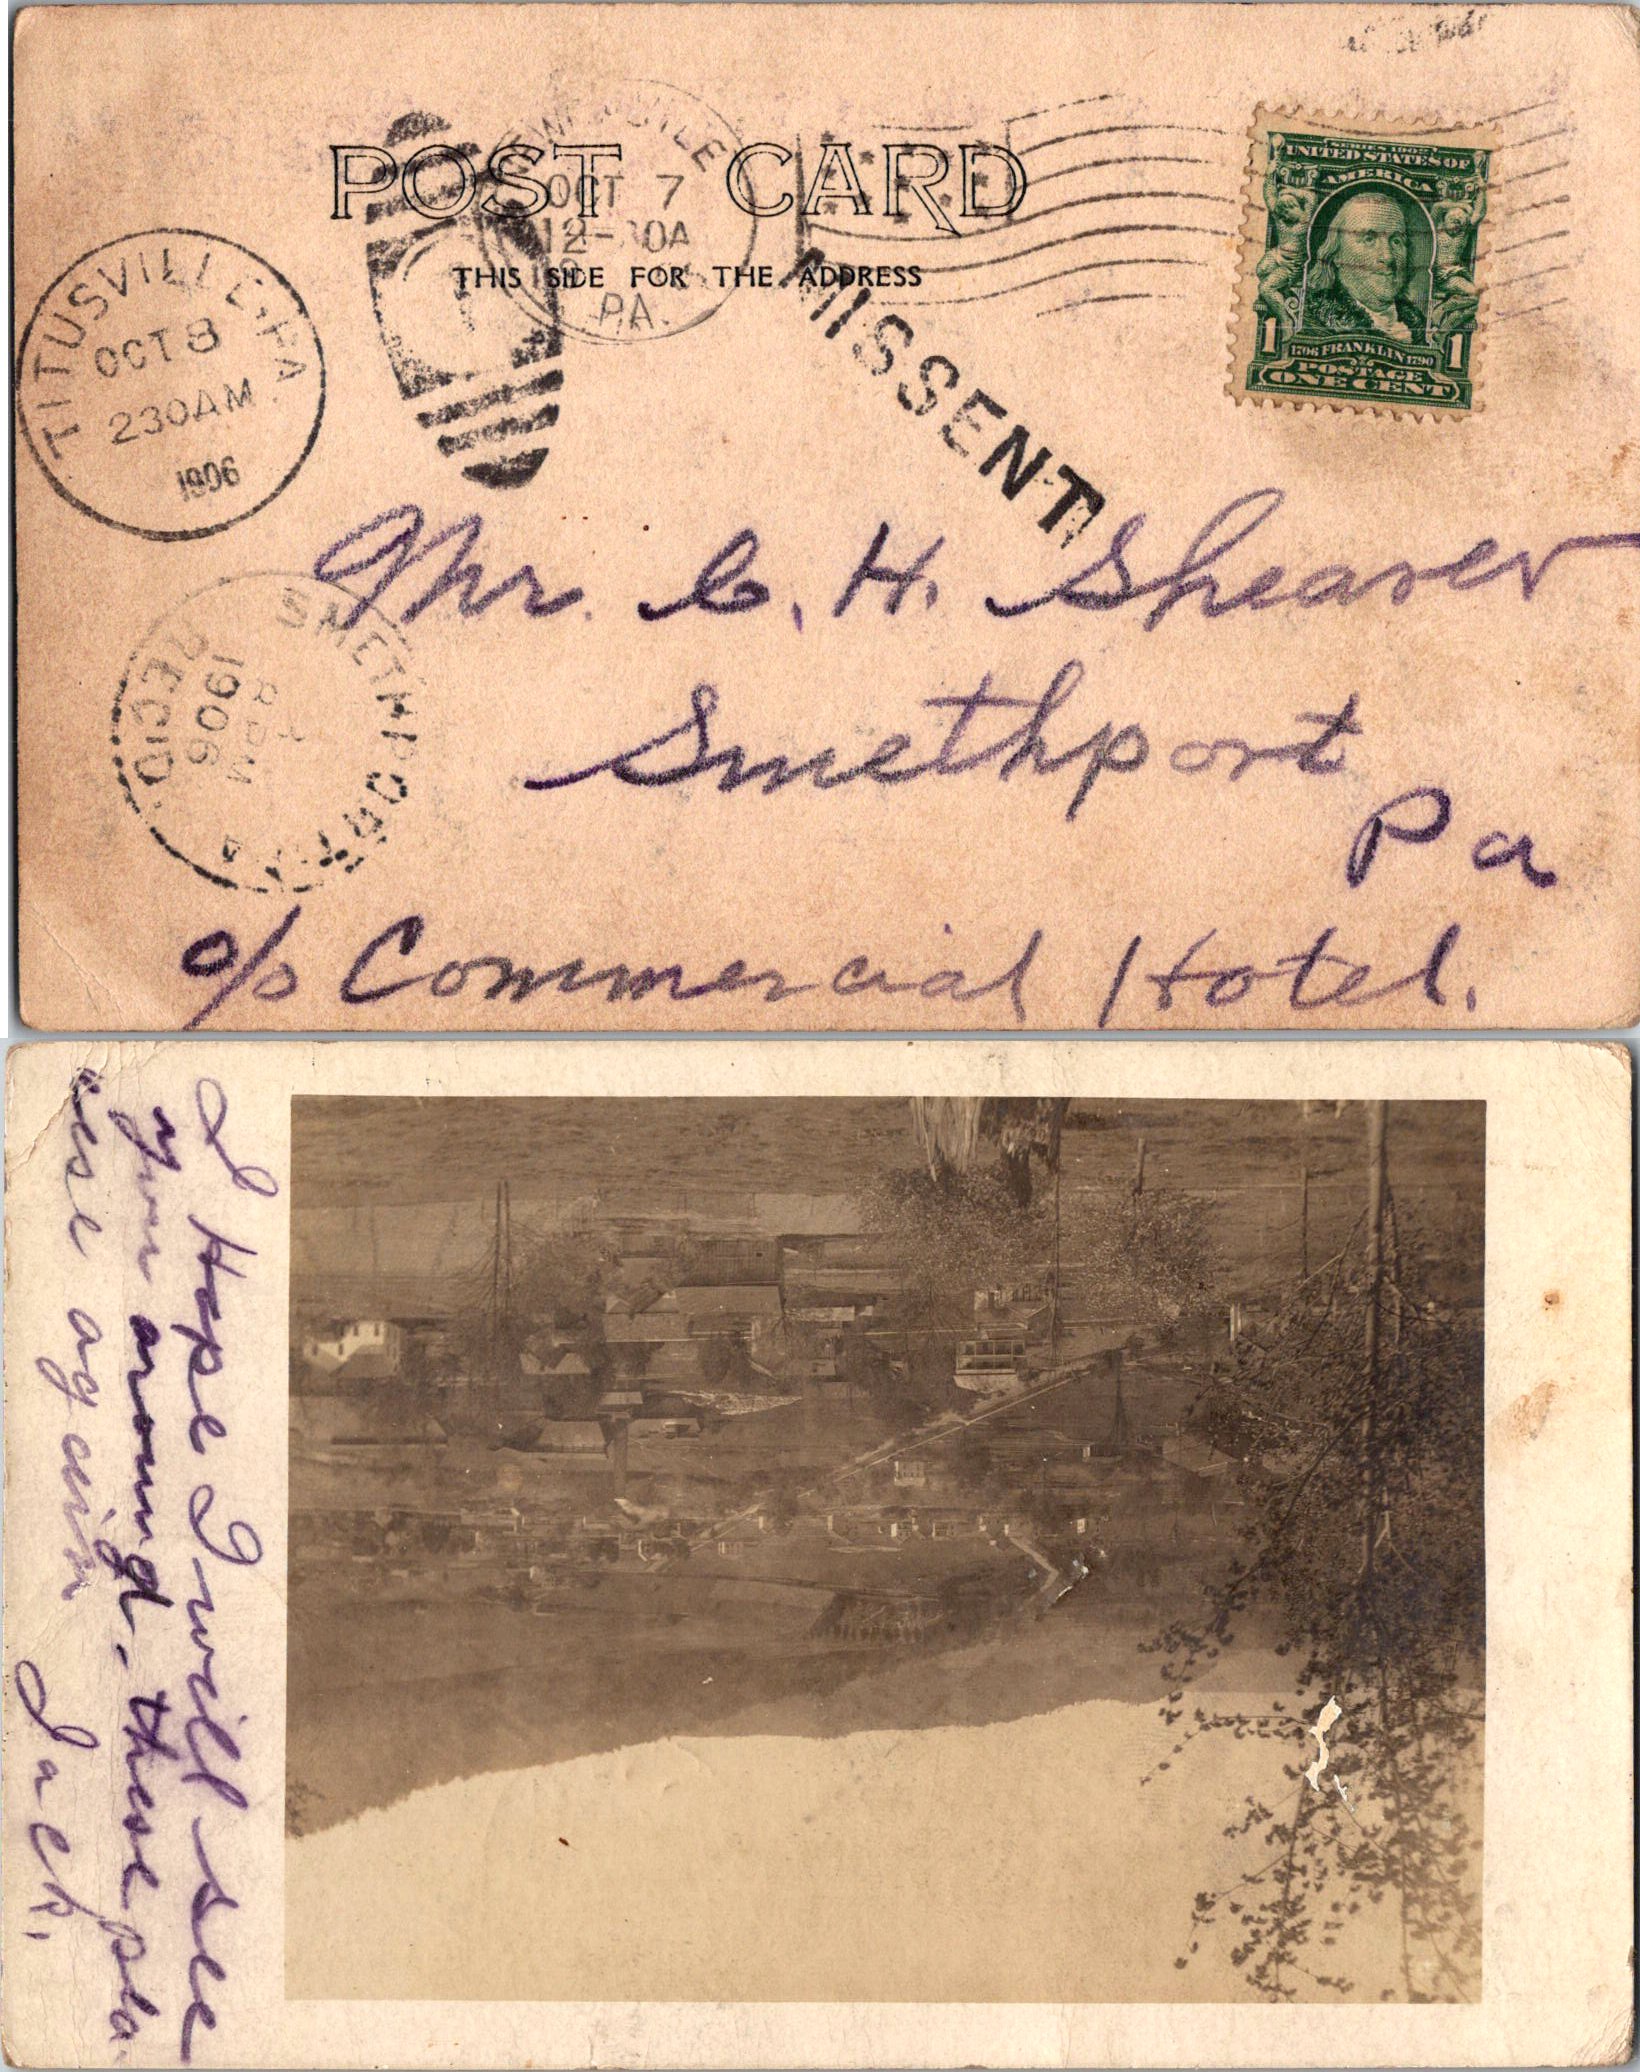 POST CARD
THIS SIDE FOR THE ADDRESS
OCT 7
PA.
SERIES 1902
UNITED STATES OF
AMERICA
1 1
1706 FRANKLIN 1790
POSTAGE
ONE CENT
MISSENT
TITUSVILLE, PA.
OCT 8
230AM
1906
SMETHPORT
REC'D.
1906
8 PM
Mr. C. H. Shearer
Smethport
Pa
c/o Commercial Hotel.
I Hope I will see
around. these pla-
again
Jack.